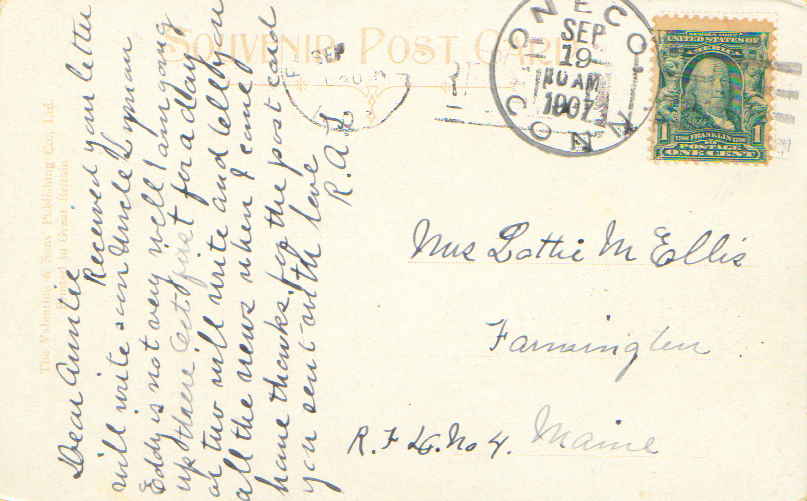 SOUVENIR POST CARD
ONECO
CONN
SEP
19
10 AM
1907
SEP
UNITED STATES OF AMERICA
FRANKLIN
POSTAGE
1 ONE CENT 1
The Valentine & Sons' Publishing Co., Ltd.
Printed in Great Britain
Dear Auntie
Received your letter
will write soon Uncle Lyman
Eddy is not very well I am going
up there Oct first for a day
or two will write and tell you
all the news when I come
home thanks for the post card
you sent with love
R. A. L
Mrs Lottie M Ellis
Farmington
R. F. D. No 4. Maine